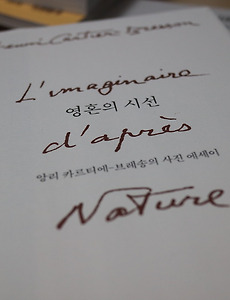 Henri Cartier-Bresson
L'imaginaire
영혼의 시선
d'après
앙리 카르티에-브레송의 사진 에세이
Nature